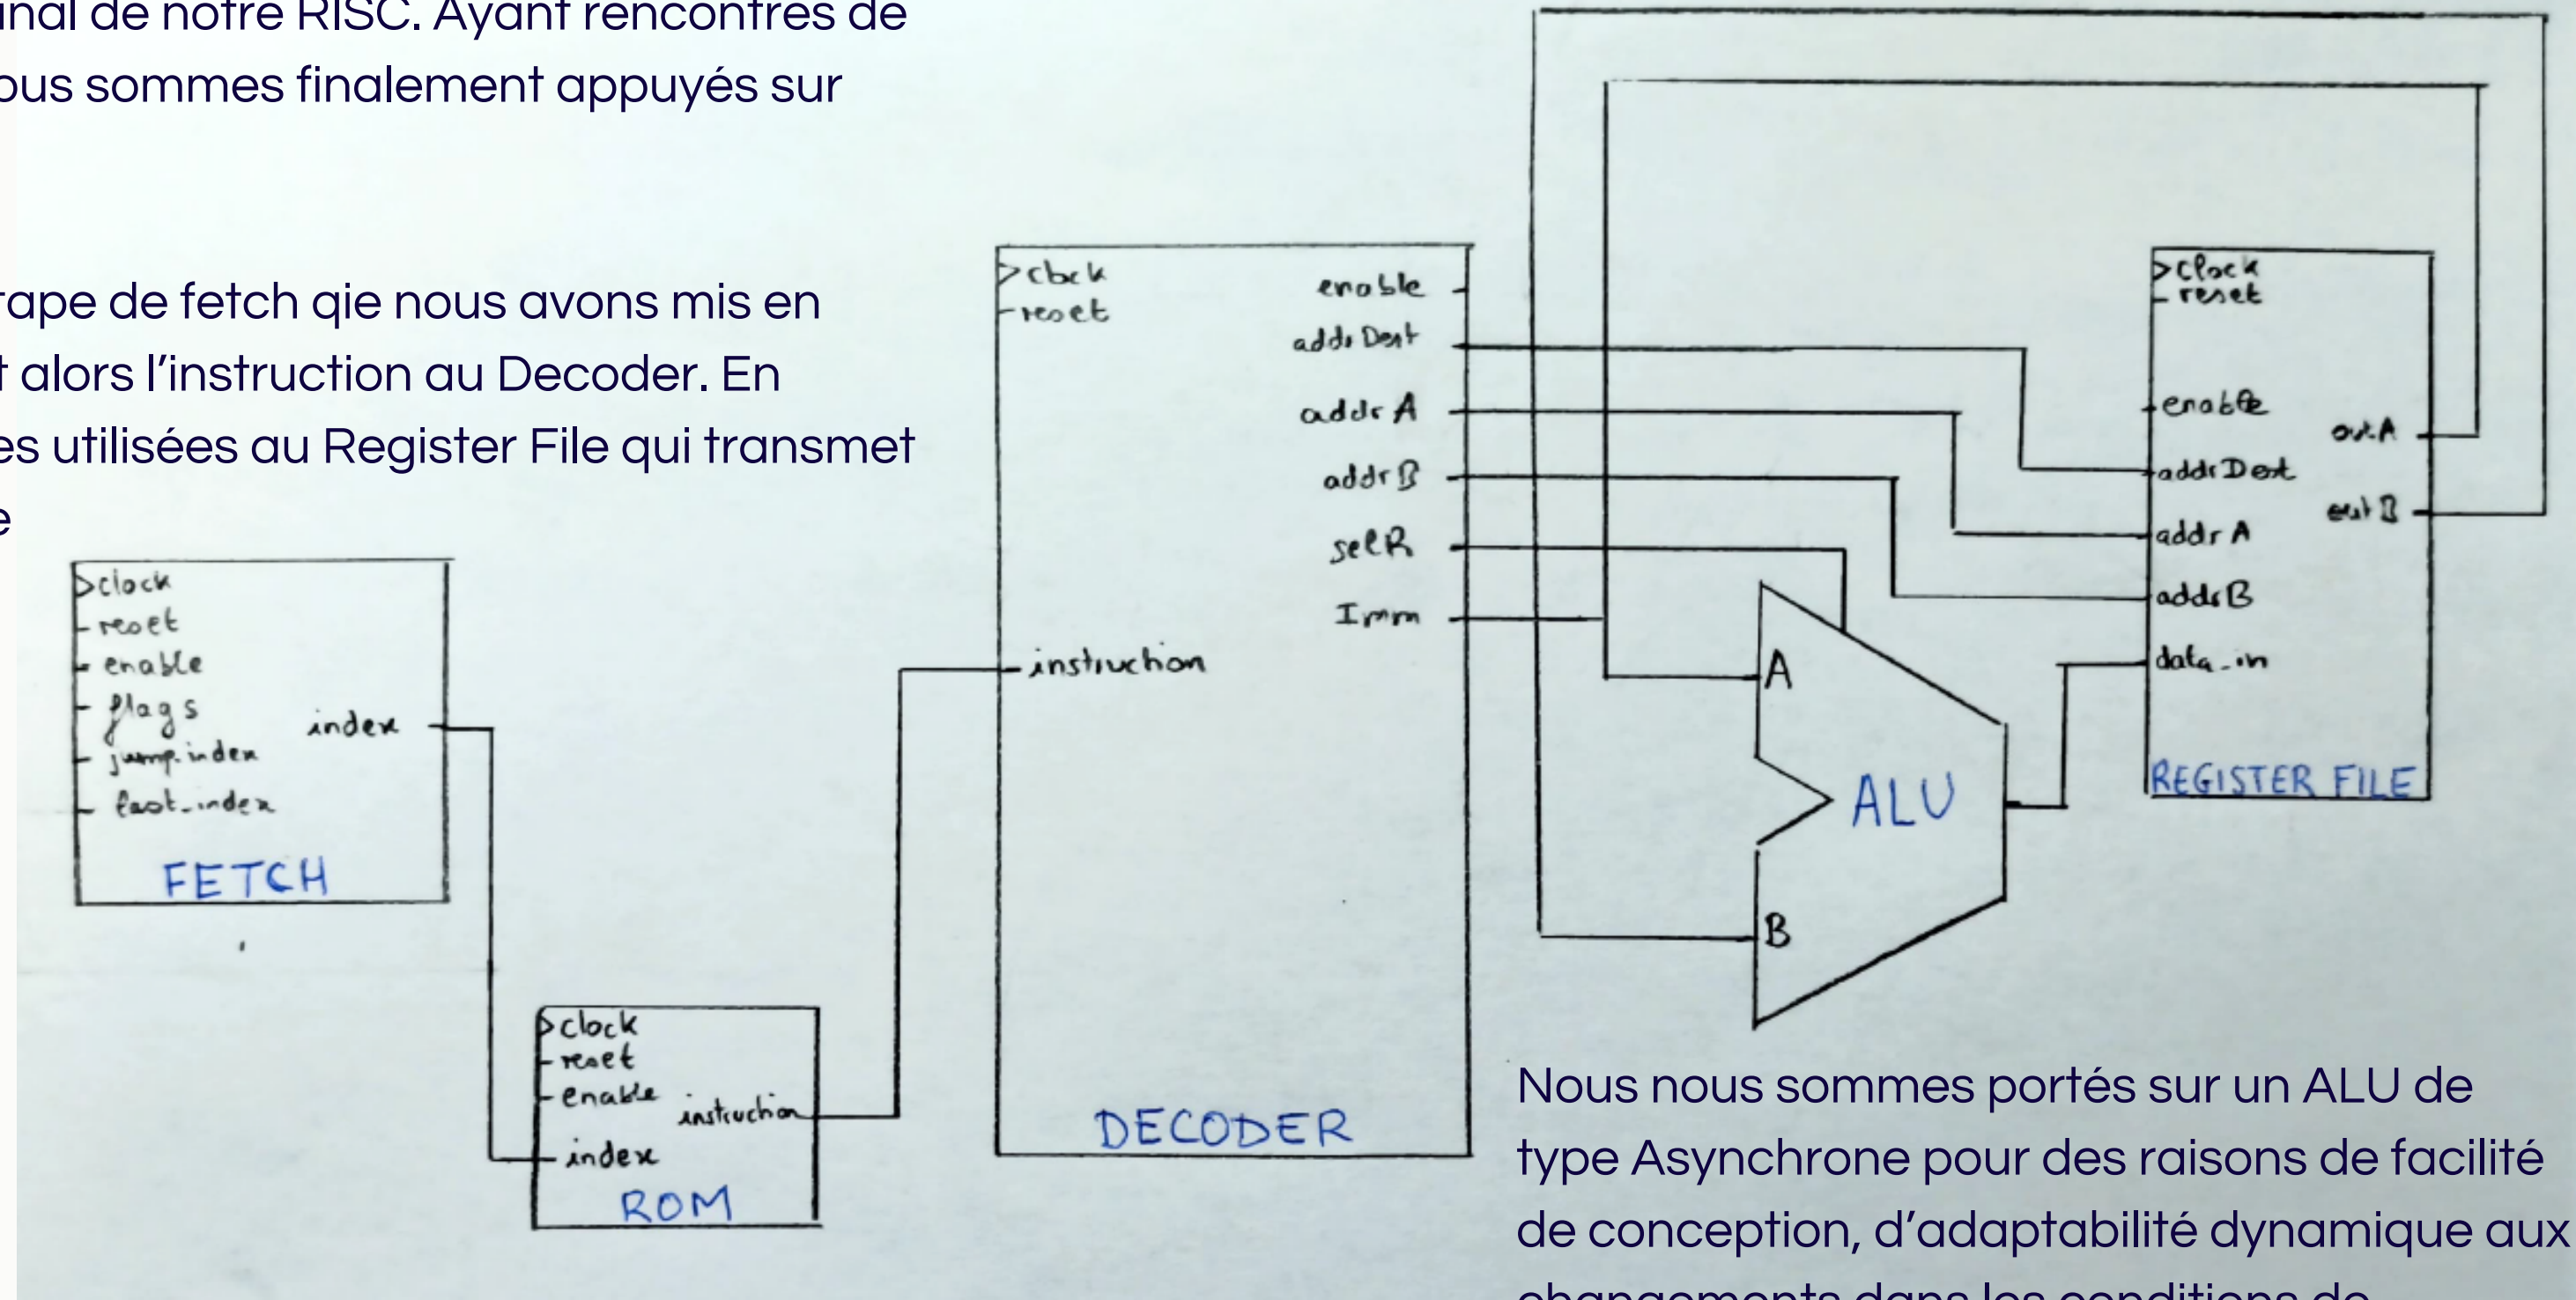 inal de notre RISC. Ayant rencontrés de
ous sommes finalement appuyés sur
tape de fetch qie nous avons mis en
t alors l'instruction au Decoder. En
es utilisées au Register File qui transmet
e
clock
reset
enable
flags
index
jump.index
last_index
FETCH
clock
reset
enable
instruction
index
ROM
clock
reset
enable
addrDest
addr A
addrB
selR
Imm
instruction
DECODER
A
ALU
B
clock
reset
enable
outA
addrDest
outB
addr A
addrB
data_in
REGISTER FILE
Nous nous sommes portés sur un ALU de
type Asynchrone pour des raisons de facilité
de conception, d'adaptabilité dynamique aux
changements dans les conditions de